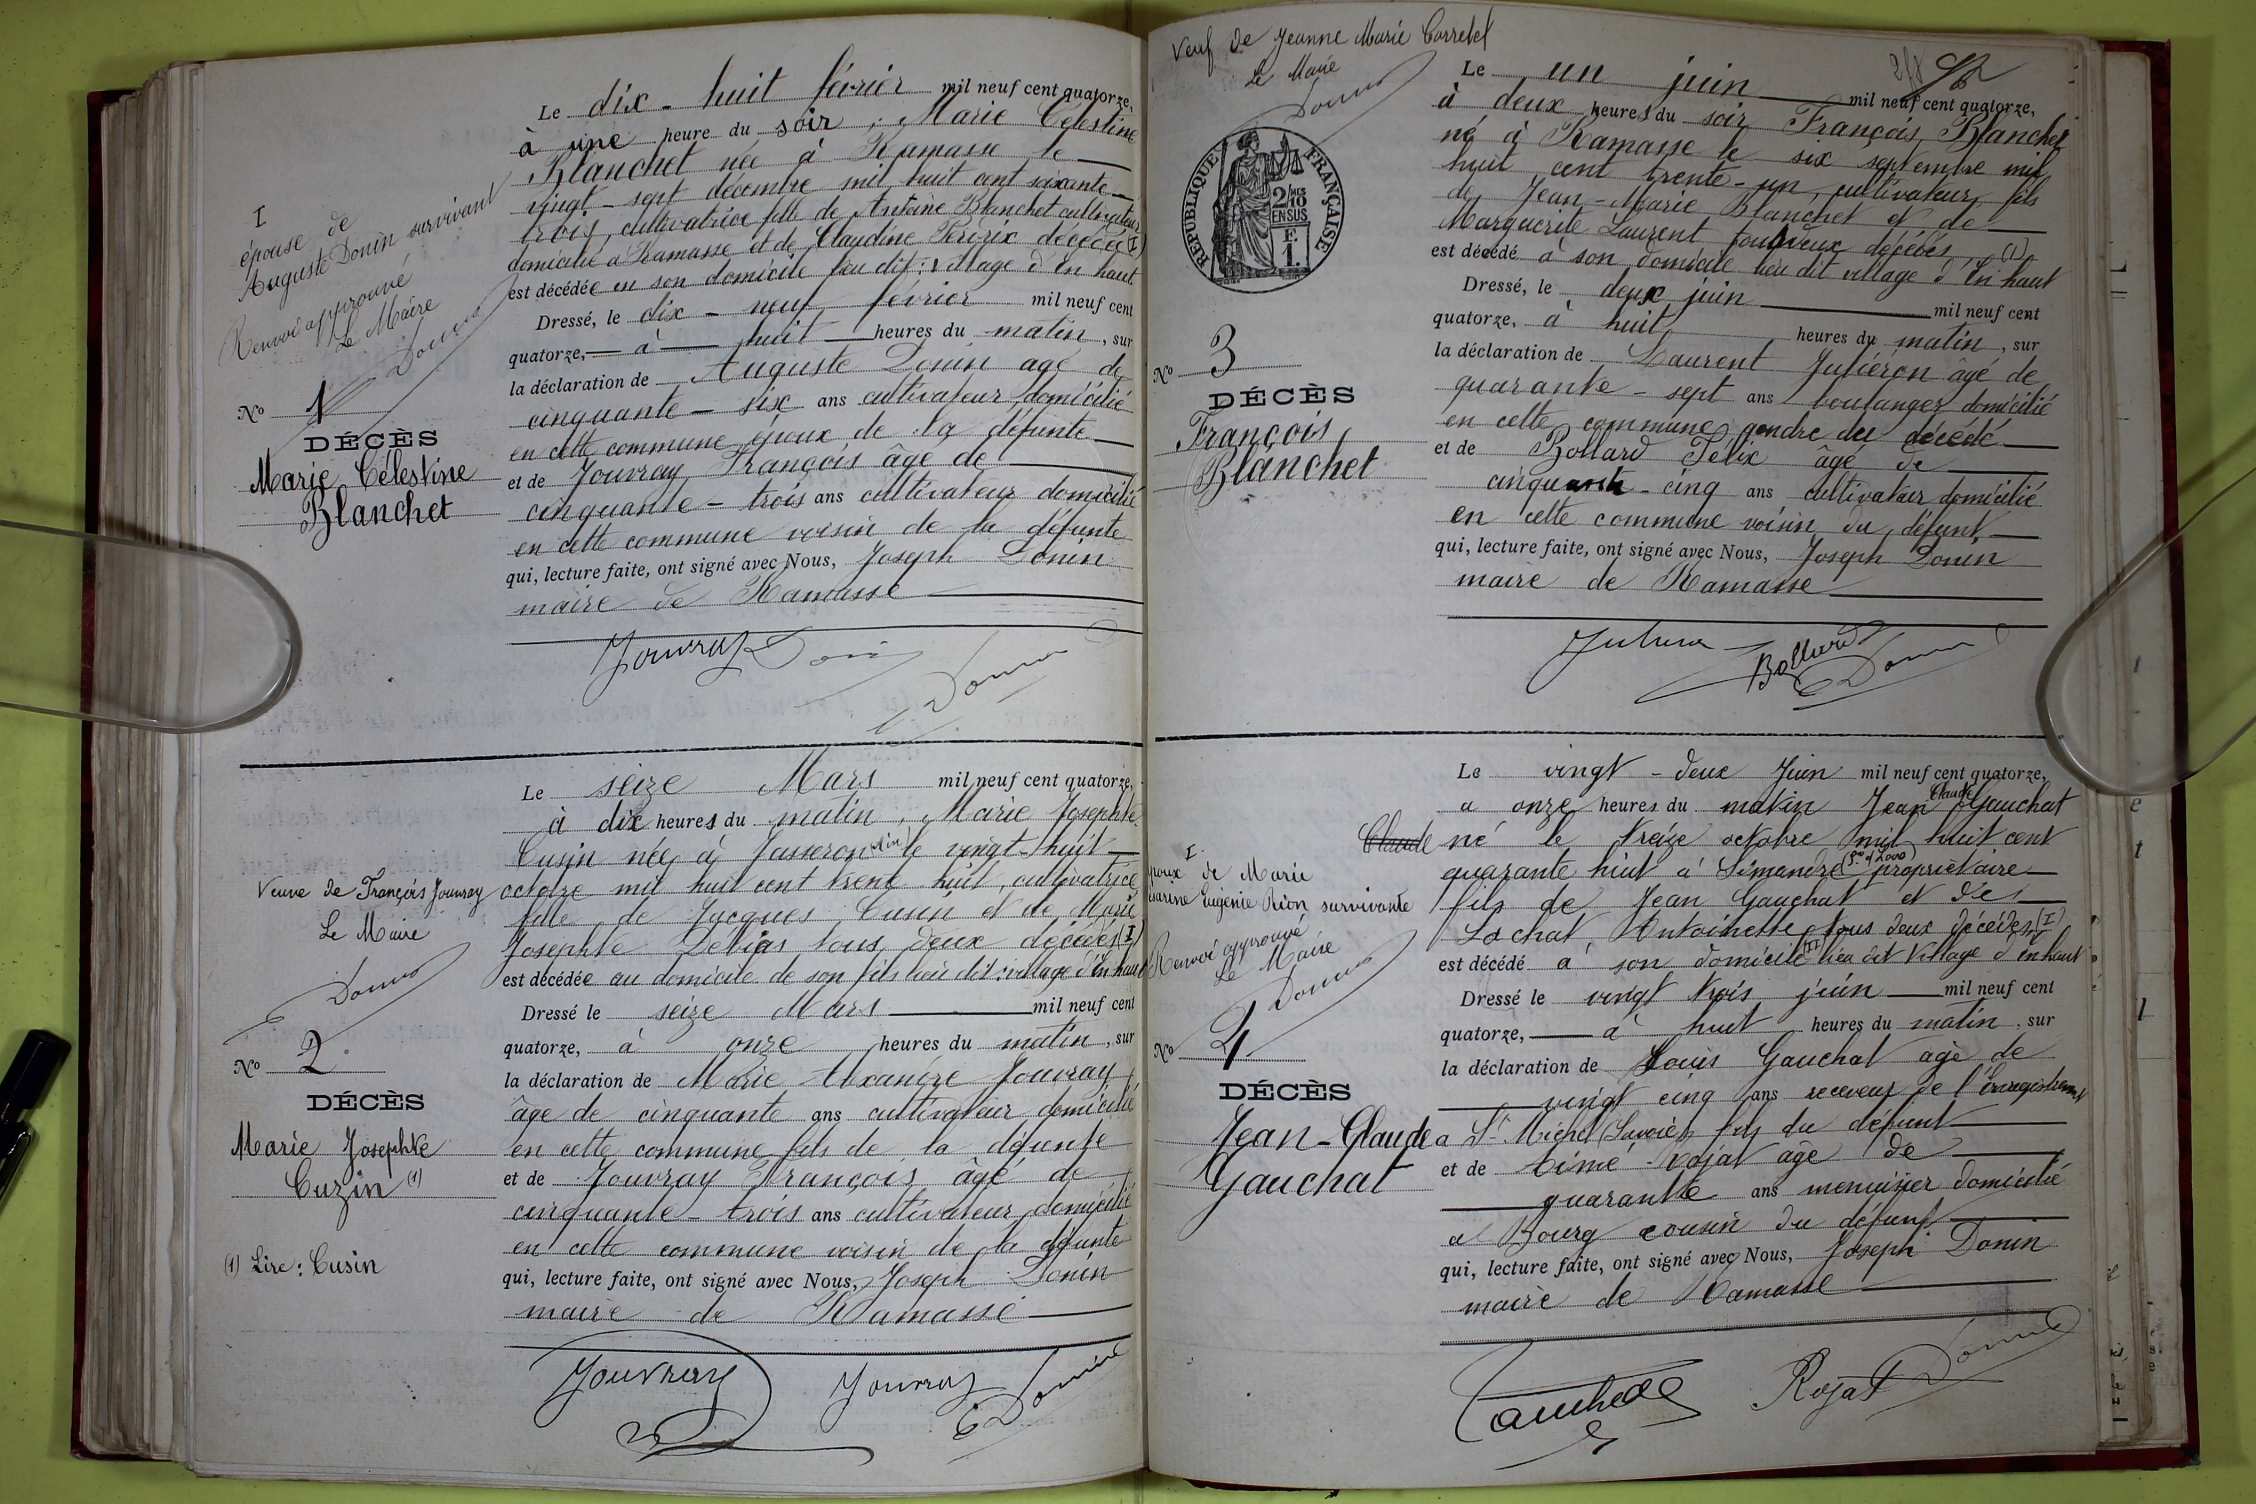 I
épouse de
Auguste Donin survivant
Renvoi approuvé
Le Maire
Donin
No 1
DÉCÈS
Marie Célestine
Blanchet
Le dix-huit février mil neuf cent quatorze,
à une heure du soir, Marie Célestine
Blanchet née à Ramasse le
vingt-sept décembre mil huit cent soixante
trois, cultivatrice fille de Antoine Blanchet cultivateur
domicilié à Ramasse et de Claudine décédée (I)
est décédée en son domicile lieu dit: village d'en haut
Dressé, le dix-neuf février mil neuf cent
quatorze, à huit heures du matin, sur
la déclaration de Auguste Donin âgé de
cinquante-six ans cultivateur domicilié
en cette commune époux de la défunte
et de Jouvray François âgé de
cinquante-trois ans cultivateur domicilié
en cette commune voisin de la défunte
qui, lecture faite, ont signé avec Nous, Joseph Donin
maire de Ramasse
Jouvray Donin
Donin
Veuve de François Jouvray
Le Maire
Donin
No 2
DÉCÈS
Marie Josephte
Cuzin (1)
(1) Lire: Cusin
Le seize Mars mil neuf cent quatorze,
à dix heures du matin, Marie Josephte
Cusin née à Jasseron (Ain) le vingt-huit
octobre mil huit cent trente huit, cultivatrice
fille de Jacques Cusin et de Marie
Josephte tous deux décédés (I)
est décédée au domicile de son fils lieu dit: village d'en haut
Dressé le seize Mars mil neuf cent
quatorze, à onze heures du matin, sur
la déclaration de Marie Alexandre Jouvray
âgé de cinquante ans cultivateur domicilié
en cette commune fils de la défunte
et de Jouvray François âgé de
cinquante-trois ans cultivateur domicilié
en cette commune voisin de la défunte
qui, lecture faite, ont signé avec Nous, Joseph Donin
maire de Ramasse
Jouvray Jouvray Donin
Veuf de Jeanne Marie Carretel
Le Maire
Donin
RÉPUBLIQUE FRANÇAISE
2/10 MES
EN SUS
F.
1.
No 3
DÉCÈS
François
Blanchet
Le un juin mil neuf cent quatorze,
à deux heures du soir François Blanchet
né à Ramasse le six septembre mil
huit cent trente-un, cultivateur, fils
de Jean-Marie Blanchet et de
Marguerite Laurent tous deux décédés (1)
est décédé à son domicile lieu dit village d'En haut
Dressé, le deux juin mil neuf cent
quatorze, à huit heures du matin, sur
la déclaration de Laurent Juliéron âgé de
quarante-sept ans boulanger domicilié
en cette commune gendre du décédé
et de Bollard Félix âgé de
cinquante-cinq ans cultivateur domicilié
en cette commune voisin du défunt
qui, lecture faite, ont signé avec Nous, Joseph Donin
maire de Ramasse
Bollard Donin
I
époux de Marie
Eugénie Rion survivante
Renvoi approuvé
Le Maire
Donin
No 4
DÉCÈS
Jean-Claude
Gauchat
Le vingt-deux Juin mil neuf cent quatorze,
a onze heures du matin Jean Claude Gauchat
Claude né le treize octobre mil huit cent
quarante huit à Simandre propriétaire
fils de Jean Gauchat et de
Lochat, Antoinette tous deux décédés (I)
est décédé à son domicile (II) lieu dit Village d'en haut
Dressé le vingt trois juin mil neuf cent
quatorze, à huit heures du matin, sur
la déclaration de Louis Gauchat âgé de
vingt cinq ans receveur de l'Enregistrement
a St Michel (Savoie) fils du défunt
et de Aimé Rojat âgé de
quarante ans menuisier domicilié
a Bourg cousin du défunt
qui, lecture faite, ont signé avec Nous, Joseph Donin
maire de Ramasse
Gauchat Rojat Donin